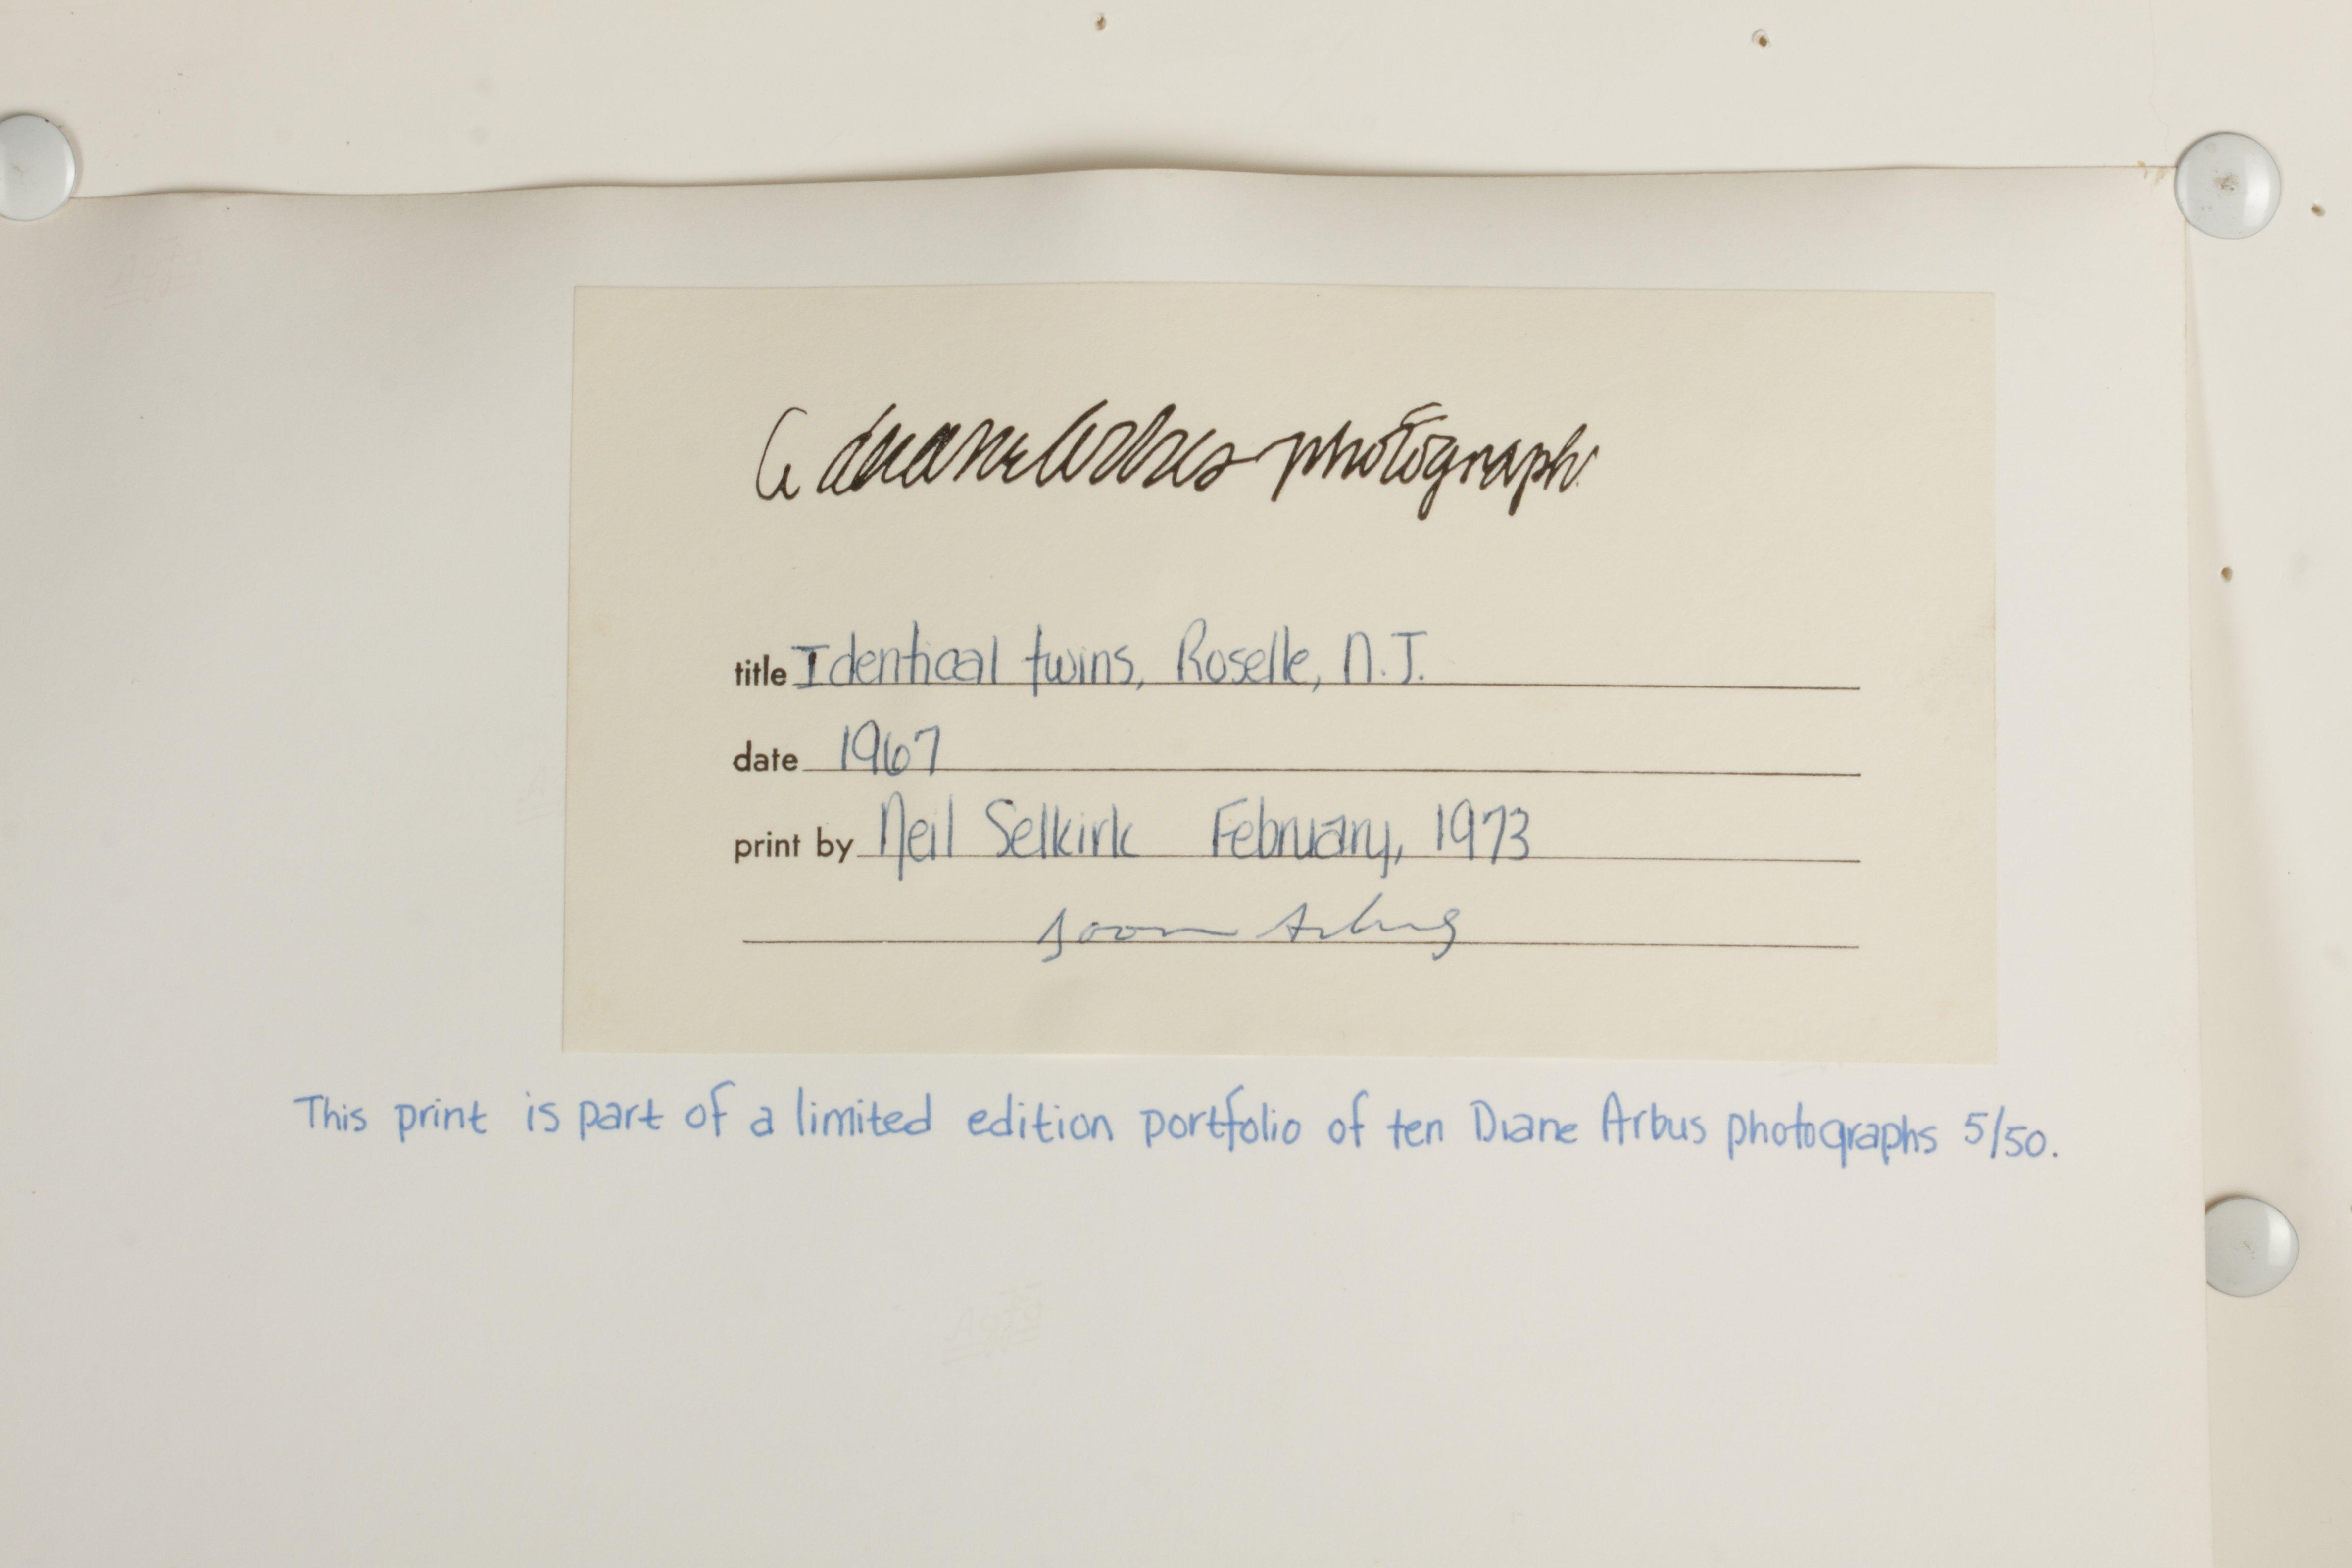 a diane arbus photograph
title Identical twins, Roselle, N.J.
date 1967
print by Neil Selkirk February, 1973
doon Arbus
This print is part of a limited edition portfolio of ten Diane Arbus photographs 5/50.